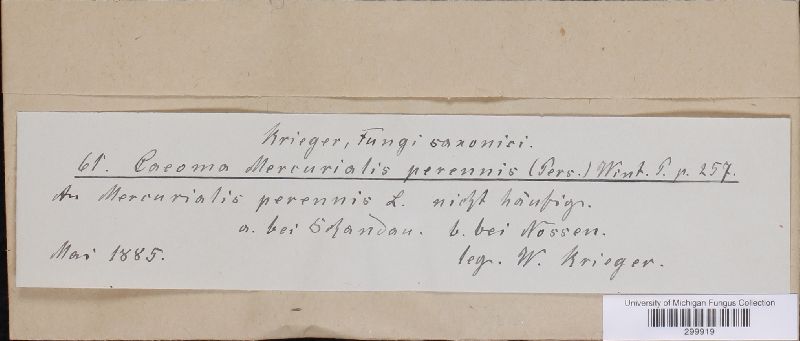 Krieger, Fungi saxonici.
61. Caeoma Mercurialis perennis (Pers.) Wint. P. p. 257.
An Mercurialis perennis L. nicht häufig.
a. bei Schandau. b. bei Nossen.
Mai 1885. leg. W. Krieger.
University of Michigan Fungus Collection
299919